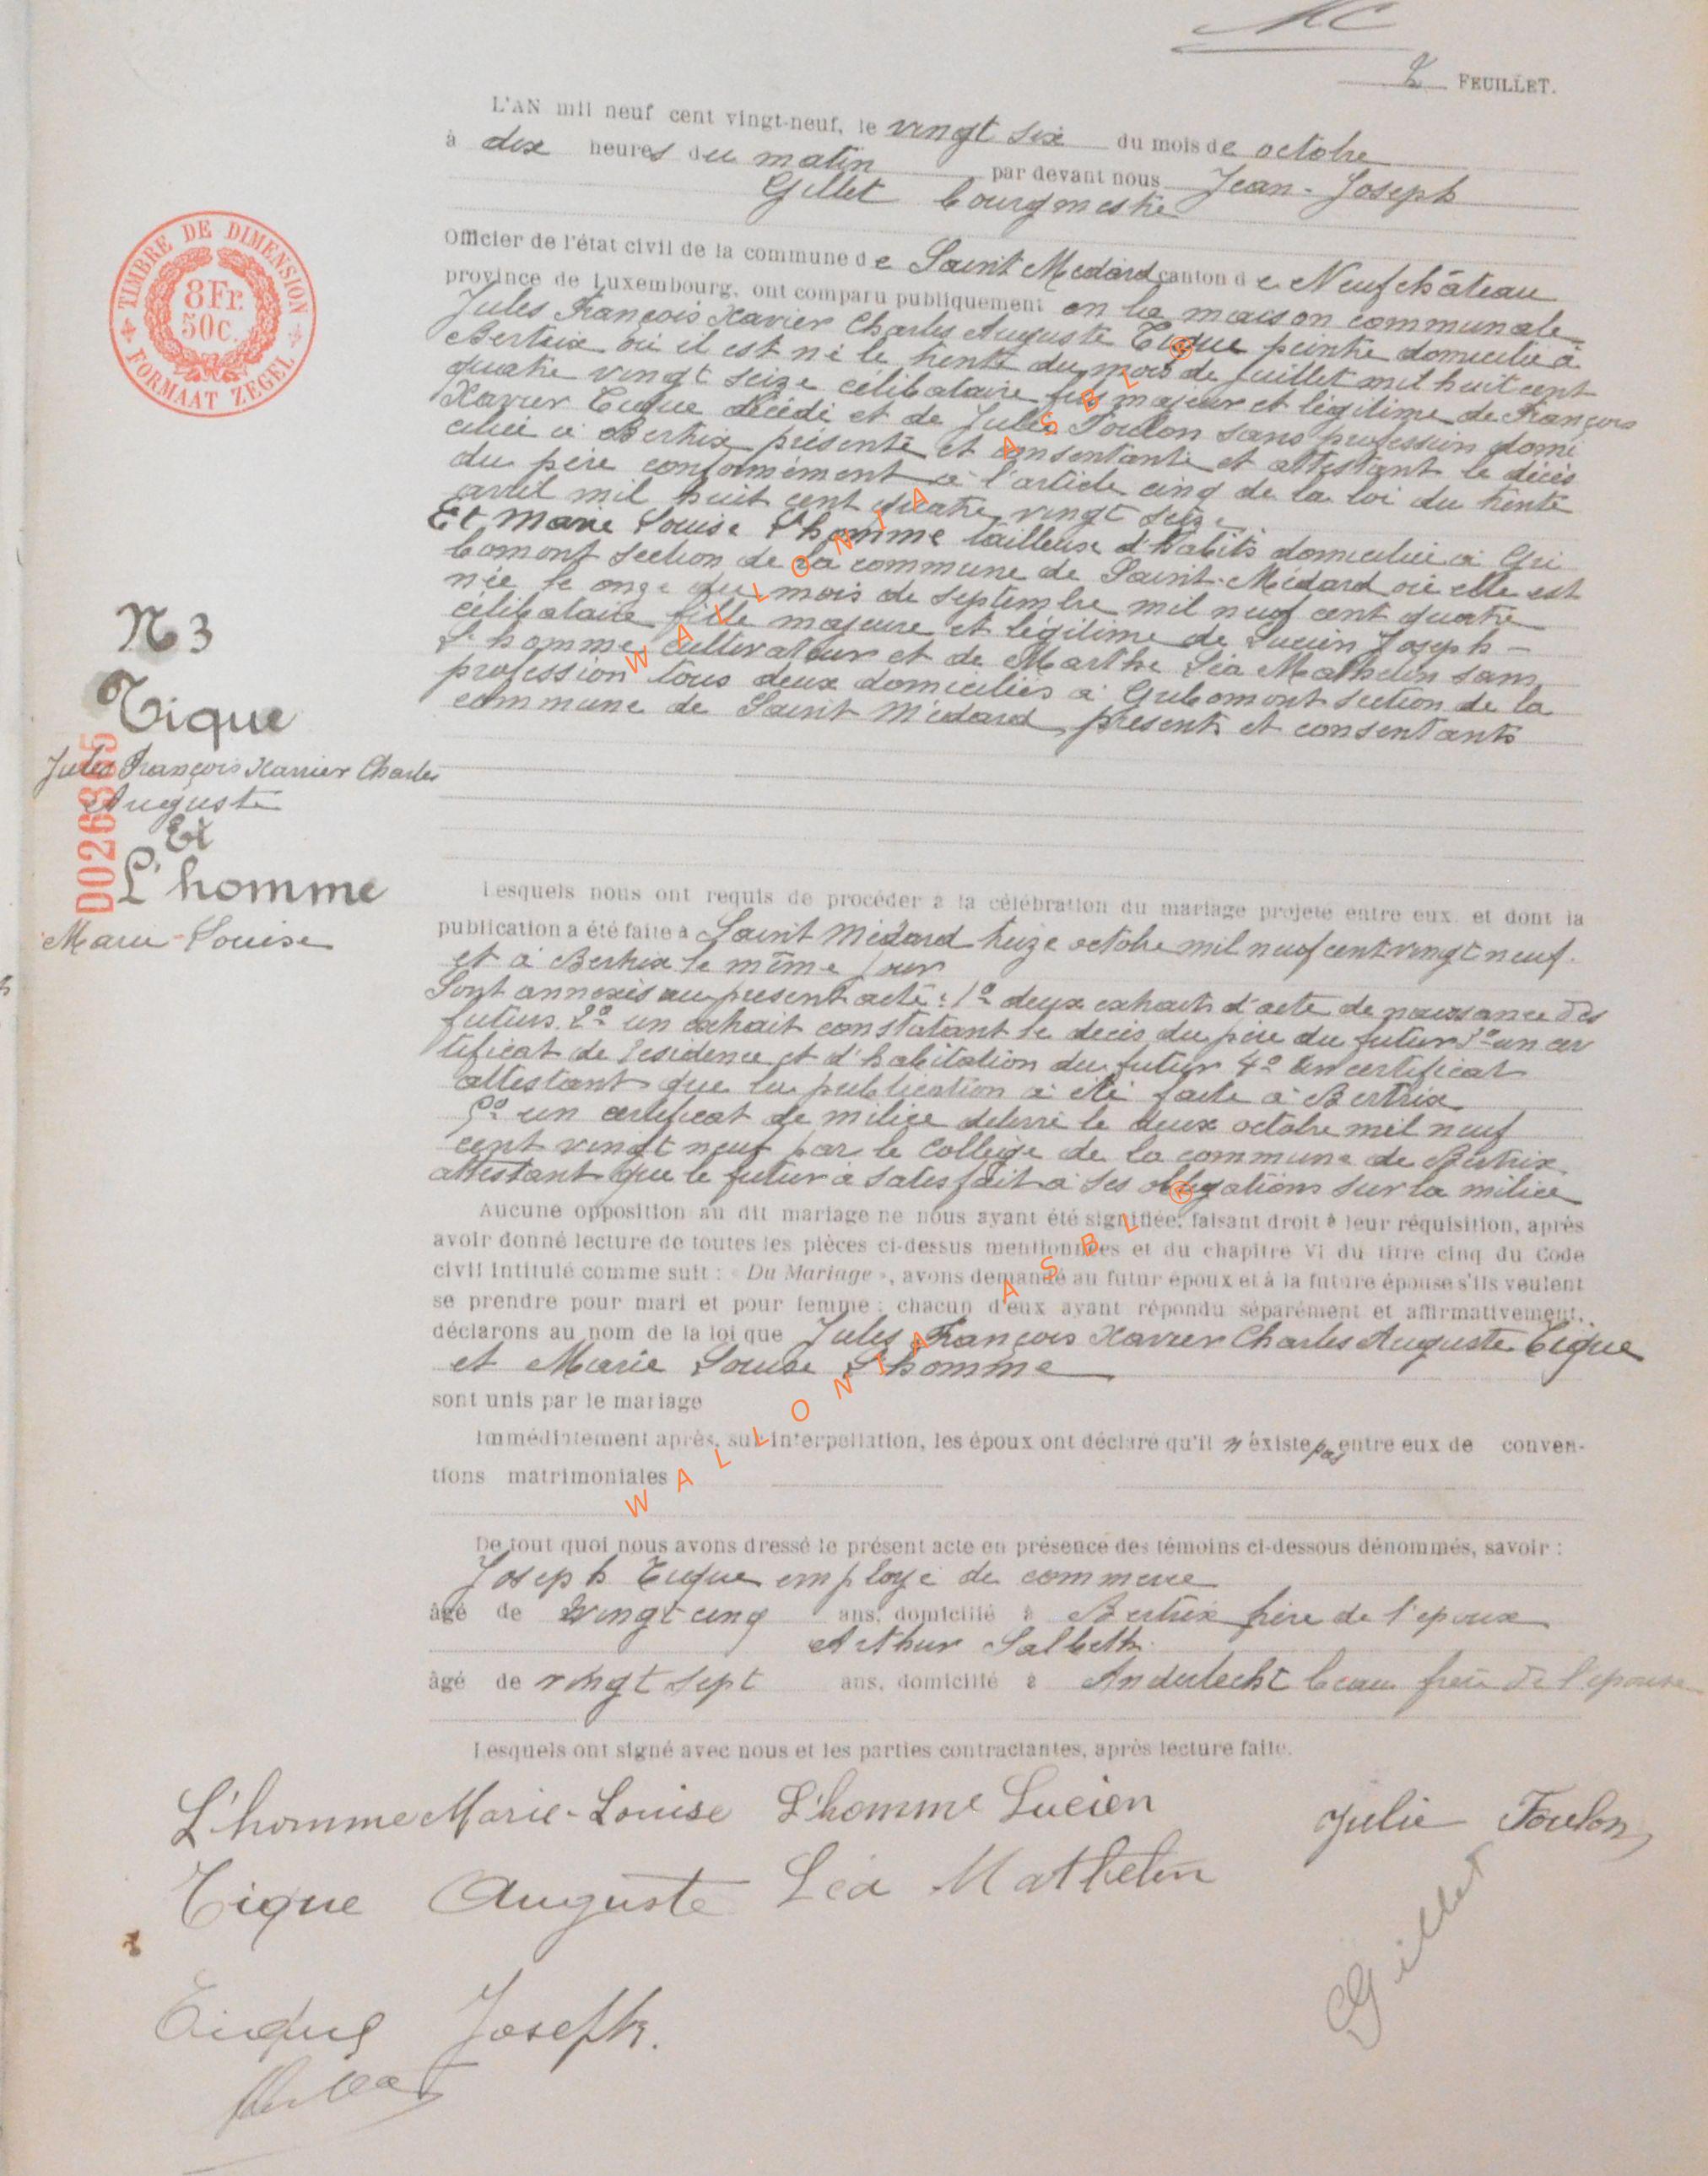 2 FEUILLET.
L'AN mil neuf cent vingt-neuf, le vingt six du mois de octobre
à dix heures du matin par devant nous Jean-Joseph
Gillet bourgmestre
Officier de l'état civil de la commune de Saint Médard canton de Neufchâteau
province de Luxembourg, ont comparu publiquement en la maison communale
Jules François Xavier Charles Auguste Tique peintre domicilié à
Bertrix où il est né le trente du mois de juillet mil huit cent
quatre vingt seize célibataire fils majeur et légitime de François
Xavier Tique décédé et de Julie Toulon sans profession domi
ciliée à Bertrix présente et consentante et attestant le décès
du père conformément à l'article cinq de la loi du trente
avril mil huit cent quatre vingt seize
Et Marie Louise L'homme tailleuse d'habits domiciliée à Gri
bomont section de la commune de Saint-Médard où elle est
née le onze du mois de septembre mil neuf cent quatre
célibataire fille majeure et légitime de Lucien Joseph-
L'homme cultivateur et de Marthe Léa Mathelin sans
profession tous deux domiciliés à Gribomont section de la
commune de Saint Médard présents et consentants
TIMBRE DE DIMENSION
8Fr.
50c.
FORMAAT ZEGEL
N 3
Tique
Jules François Xavier Charles
Auguste
Et
L'homme
Marie-Louise
D026865
Lesquels nous ont requis de procéder à la célébration du mariage projeté entre eux. et dont la
publication a été faite à Saint Médard treize octobre mil neuf cent vingt neuf.
et à Bertrix le même jour
Sont annexés au présent acte: 1° deux extraits d'acte de naissance des
futurs. 2° un extrait constatant le décès du père du futur 3° un cer
tificat de résidence et d'habitation du futur 4° un certificat
attestant que la publication a été faite à Bertrix
5° un certificat de milice délivré le deux octobre mil neuf
cent vingt neuf par le Collège de la commune de Bertrix
attestant que le futur a satisfait à ses obligations sur la milice
Aucune opposition au dit mariage ne nous ayant été signifiée, faisant droit à leur réquisition, après
avoir donné lecture de toutes les pièces ci-dessus mentionnées et du chapitre VI du titre cinq du Code
civil intitulé comme suit : « Du Mariage », avons demandé au futur époux et à la future épouse s'ils veulent
se prendre pour mari et pour femme ; chacun d'eux ayant répondu séparément et affirmativement,
déclarons au nom de la loi que Jules François Xavier Charles Auguste Tique
et Marie Louise L'homme
sont unis par le mariage
Immédiatement après, sur interpellation, les époux ont déclaré qu'il n'existe pas entre eux de conven-
tions matrimoniales
De tout quoi nous avons dressé le présent acte en présence des témoins ci-dessous dénommés, savoir :
Joseph Tique employé de commerce
âgé de vingt cinq ans, domicilié à Bertrix frère de l'époux
Arthur
âgé de vingt sept ans, domicilié à Anderlecht beau frère de l'épouse
Lesquels ont signé avec nous et les parties contractantes, après lecture faite.
L'homme Marie-Louise L'homme Lucien Julie Toulon
Tique Auguste Léa Mathelin
Gillet
Tique Joseph.
WALLONIA ASBL ®
WALLONIA ASBL ®